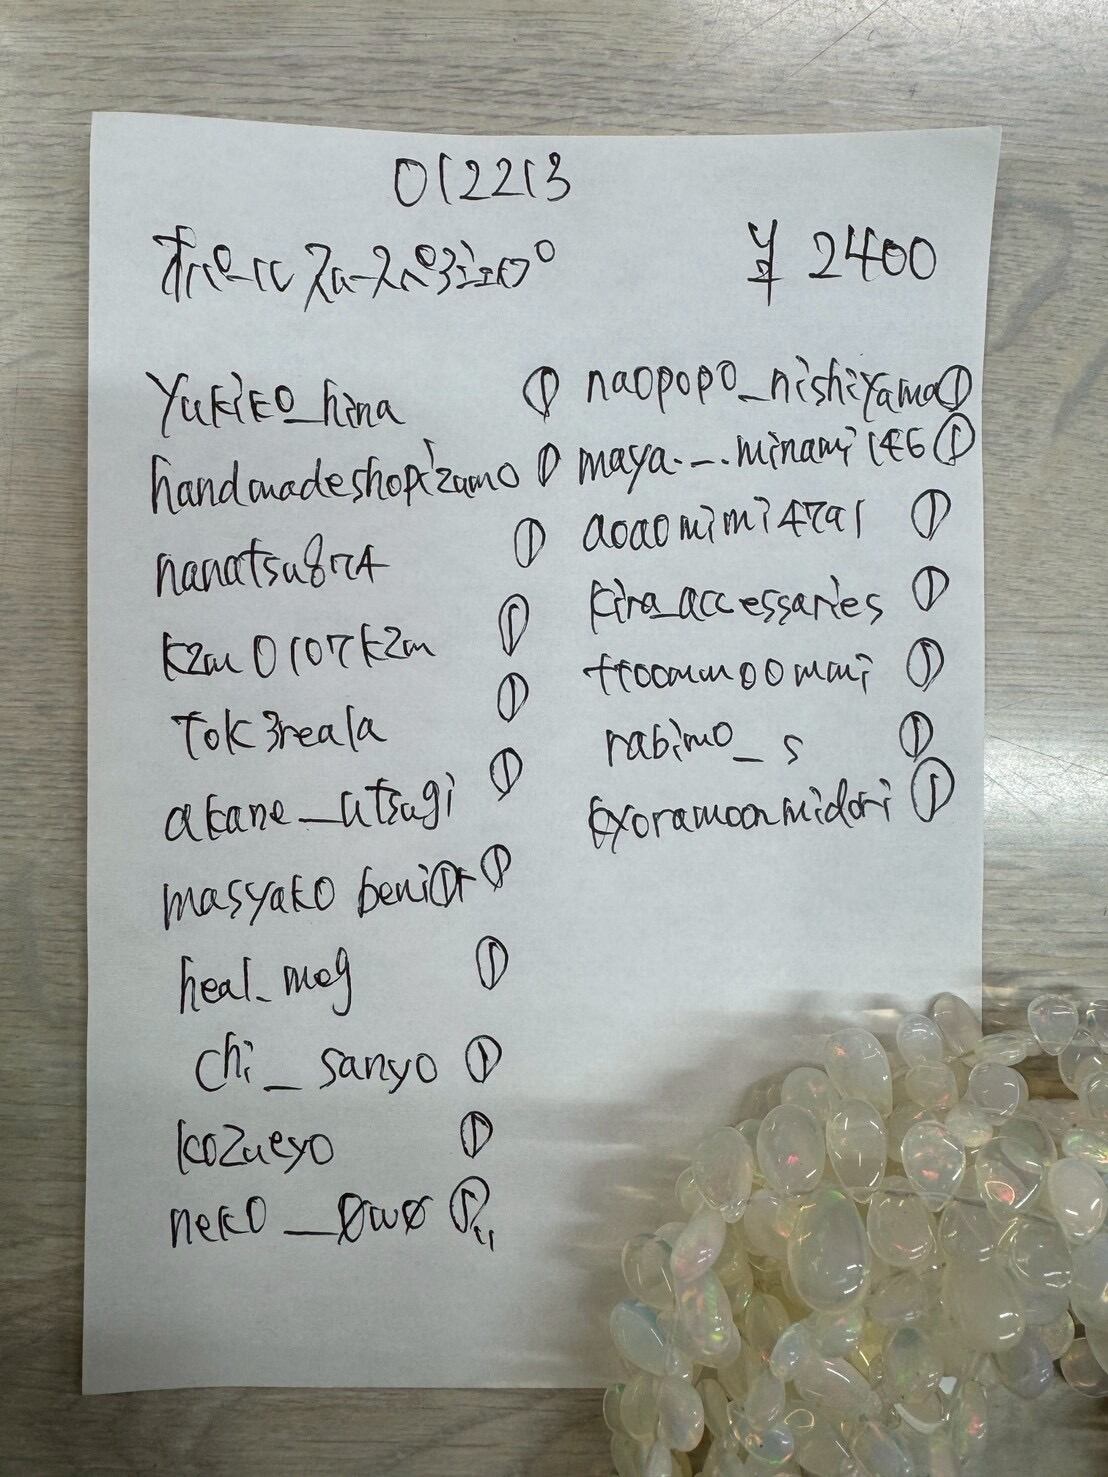 012213
オパール スムースペアシェイプ
¥2400
yukiko_hina ①
handmadeshopizumo ①
nanatsu874 ①
kzm0107kzm ①
tok3reala ①
akane_utsugi ①
masyako ①
heal_meg ①
chi_sanyo ①
kozueyo ①
neko_øwø ①
naopopo_nishiyama ①
maya._.minami146 ①
aoaomimi4791 ①
kira_accessaries ①
ttoommoommi ①
rabimo_s ①
kyoramoonmidori ①